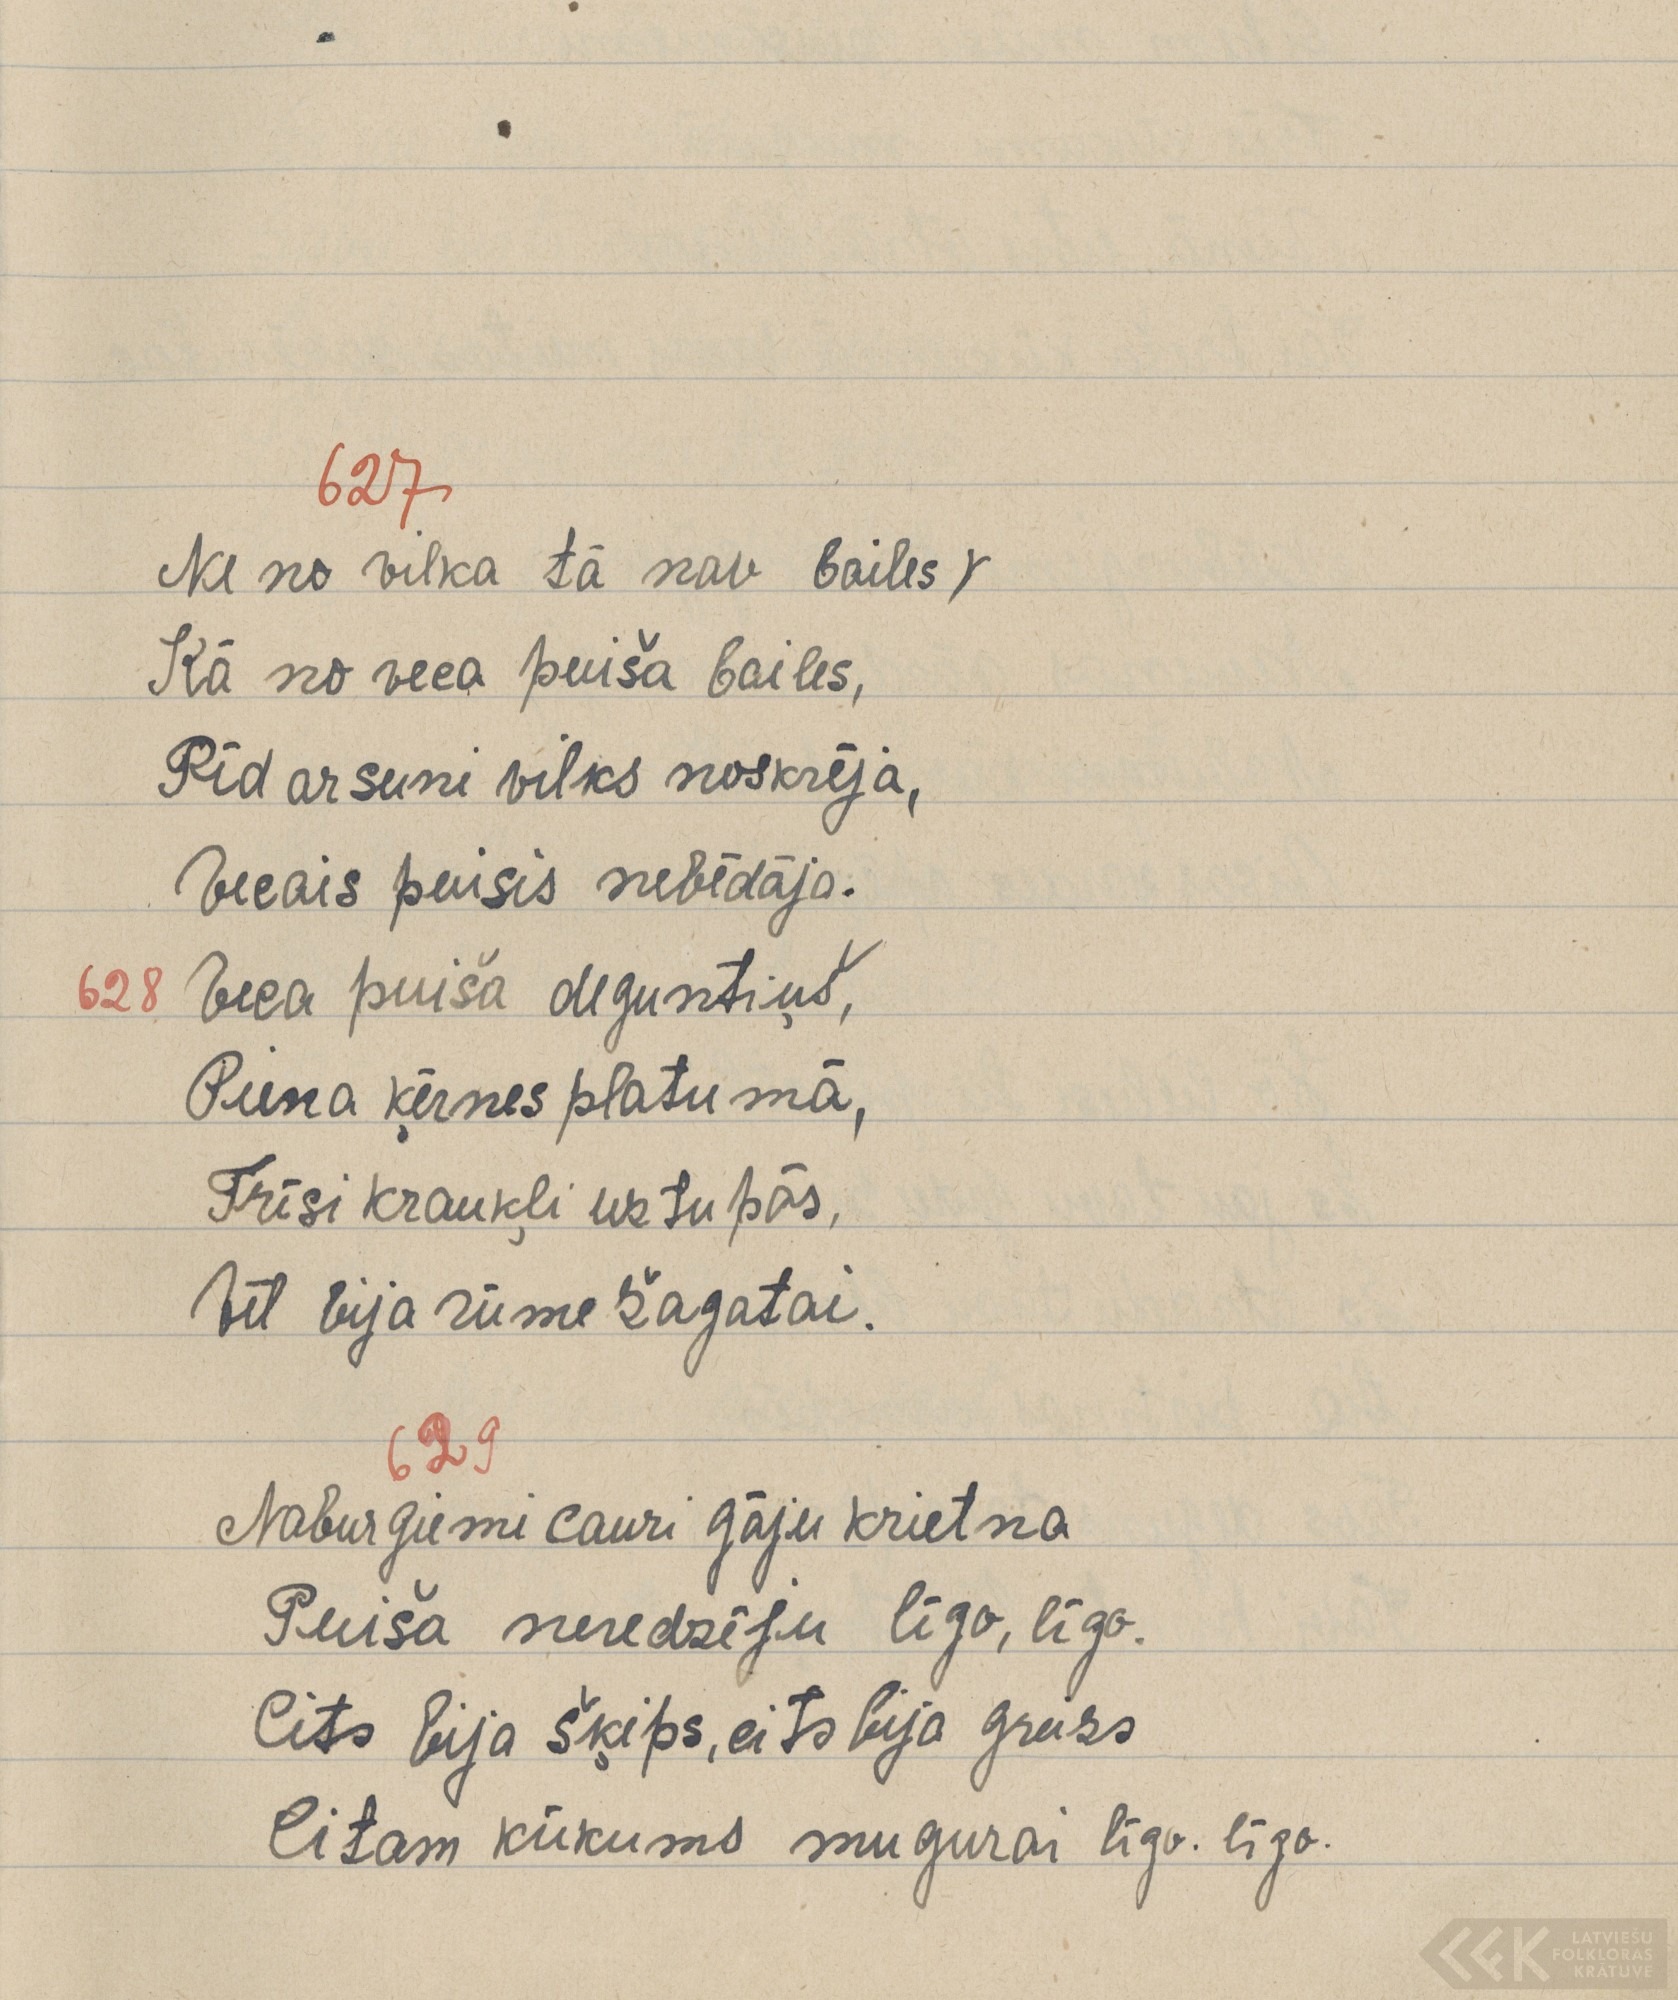 627
Ne no vilka tā nav bailes,
Kā no veca puiša bailes,
Rīd ar suni vilks noskrēja,
Vecais puisis nebēdāja.
628 Veca puiša deguntiņš,
Piena ķērnes platumā,
Trīsi kraukļi uztupās,
Vēl bija rūme žagatai.
629
Naburgiemi cauri gāju krietna
Puiša neredzēju līgo, līgo.
Cits bija šķips, cits bija greizs
Citam kūkums mugurai līgo. līgo.
LATVIEŠU
FOLKLORAS
KRĀTUVE